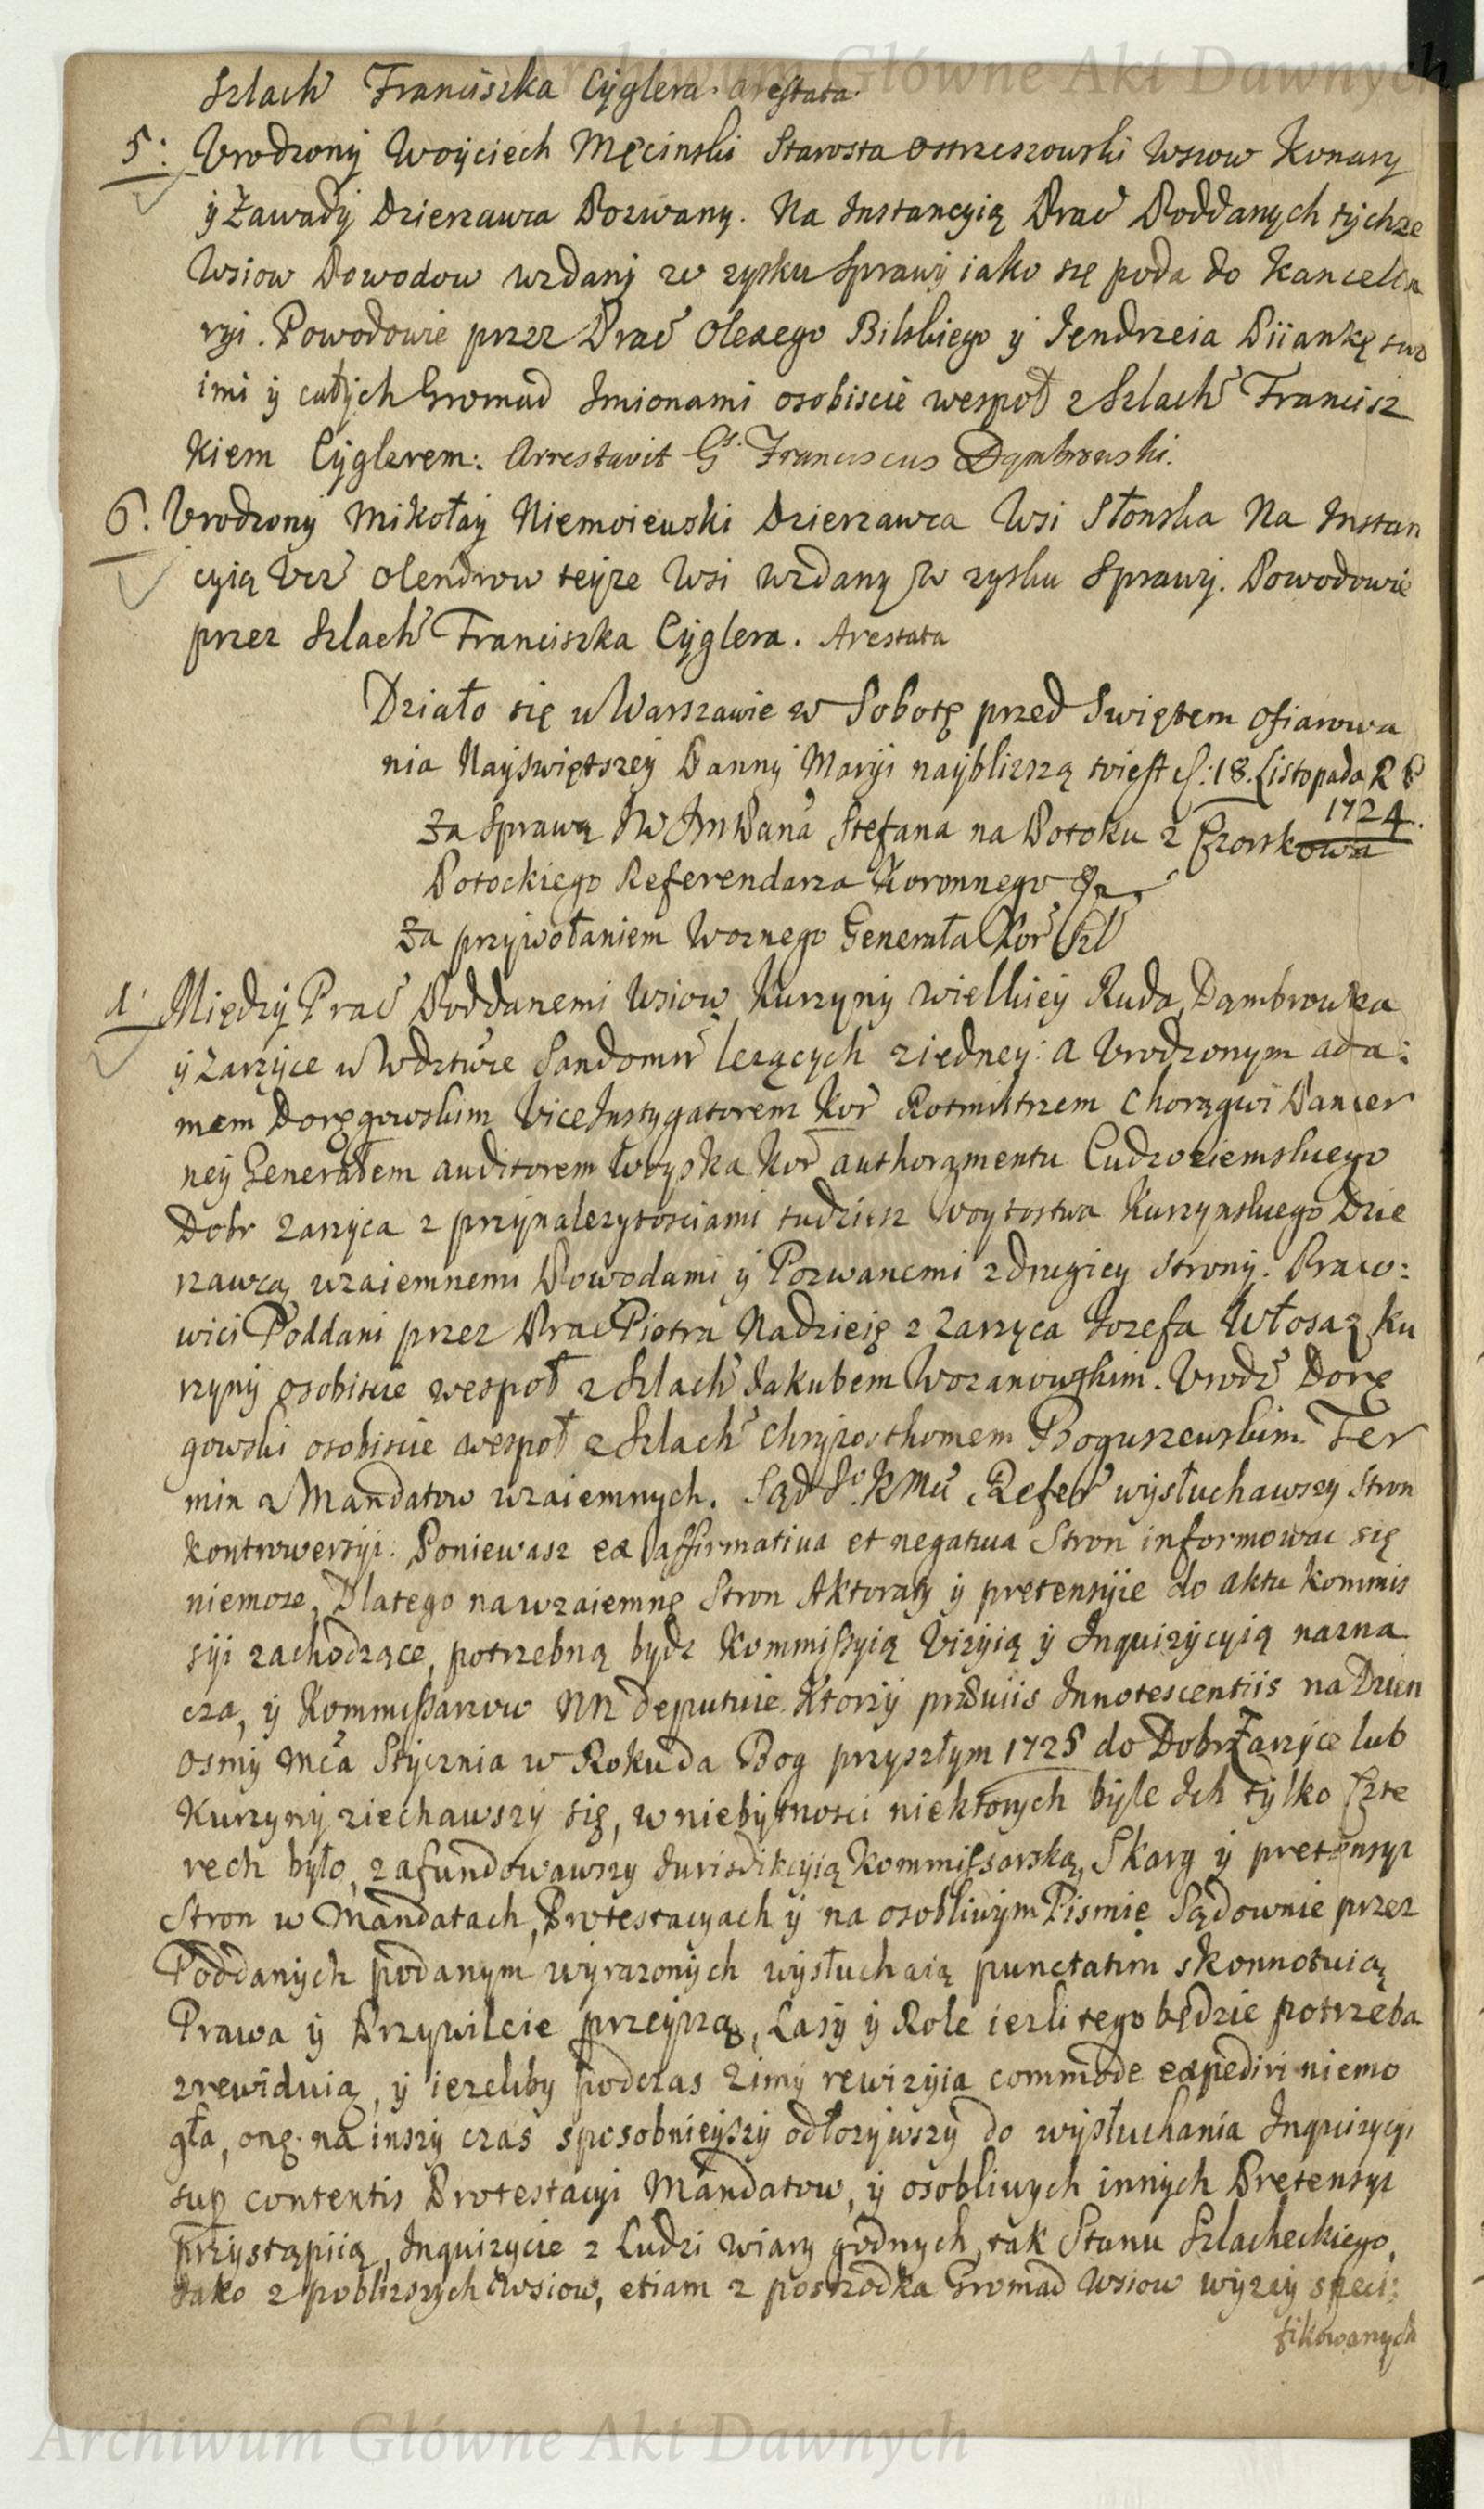 Archiwum Główne Akt Dawnych
Szlach Franciszka Cyglera. arestata.
5. Urodzony Woyciech Męcinski Starosta Ostrzeszowski Wsiow Konary
y Zawady Dzierzawca Pozwany. Na Instancyią Prac Poddanych tychze
Wsiow Powodow wzdany w zysku Sprawy iako się poda do Kancella
ryi. Powodowie przez Prac Olexego Bilskiego y Jendrzeia Piiankę swo
imi y całych Gromad Imionami osobiscie wespoł z Szlach Francisz
kiem Cyglerem: Arrestavit Gs. Franciscus Dąmbrowski.
6. Urodzony Mikołay Niemoiewski Dzierzawca Wsi Słonska Na Instan
cyią Ucz Olendrow teyze Wsi wzdany w zysku Sprawy. Powodowie
przez Szlach Franciszka Cyglera. Arestata
Działo się w Warszawie w Sobotę przed Swiętem Ofiarowa
nia Nayswiętszey Panny Maryi nayblizszą to iest d. 18. Listopada R P
1724.
Za Sprawą JW JmPana Stefana na Potoku z Czoszkowa
Potockiego Referendarza Koronnego
Za przywołaniem Woznego Generała Kor Szl
1. Między Prac Poddanemi Wsiow Kurzyny wielkiey Ruda, Dąmbrowka
y Zarzyce w Wdztwie Sandomir lezących z iedney: a Urodzonym Ada:
mem Doręgowskim Vice Instygatorem Kor Rotmistrzem Chorągwi Pancer
ney Generałem auditorem Woyska Kor authoramentu Cudzoziemskiego
Dobr Zarzyca z przynalezytosciami tudziesz Woytostwa Kurzynskiego Dzie
rzawcą wzaiemnemi Powodami y Pozwanemi z drugiey strony. Praco:
wici Poddani przez Prac Piotra Nadzieię z Zarzyca Jozefa Włosa z Ku
rzyny osobiscie wespoł z Szlach Jakubem Wozanowskim. Urodz Dorę
gowski osobiscie wespoł z Szlach Chryzosthomem Boguszewskim. Ter
min z Mandatow wzaiemnych. Sąd Jo KMci Refer wysłuchawszy Stron
kontrowersyi. Poniewasz ex affirmativa et negativa Stron informowac się
niemoze, Dlatego na wzaiemne Stron Aktoraty y pretensyie do aktu kommis
syi zachodzące, potrzebną bydz Kommissyią Wizyią y Inquizycyią nazna
cza, y Kommissarzow NN deputuie Ktorzy praeviis Innotescentiis na Dzien
Osmy Mca Stycznia w Roku da Bog przyszłym 1725 do Dobr Zarzyce lub
Kurzyny ziechawszy się, w niebytnosci niektorych byle Ich tylko Czte
rech było, zafundowawszy Jurisdikcyią Kommissarską, Skarg y pretensyi
Stron w Mandatach, Protestacyach y na osobliwym Pismie Sądownie przez
Poddanych podanym wyrazonych wysłuchaią punctatim skonnotuią
Prawa y Przywileie przeyzrą, Lasy y Role iezli tego będzie potrzeba
zrewiduią, y iezeliby podczas Zimy rewizyia commode expediri niemo
gła, onę na inszy czas sposobnieyszy odłozywszy do wysłuchania Inquizycyi
sup contentis Protestacyi Mandatow, y osobliwych innych Pretensyi
przystąpiią, Inquizycie z Ludzi wiary godnych, tak Stanu Szlacheckiego,
Jako z poblizszych Wsiow, etiam z poszrodka Gromad Wsiow wyzey speci:
fikowanych
Archiwum Główne Akt Dawnych